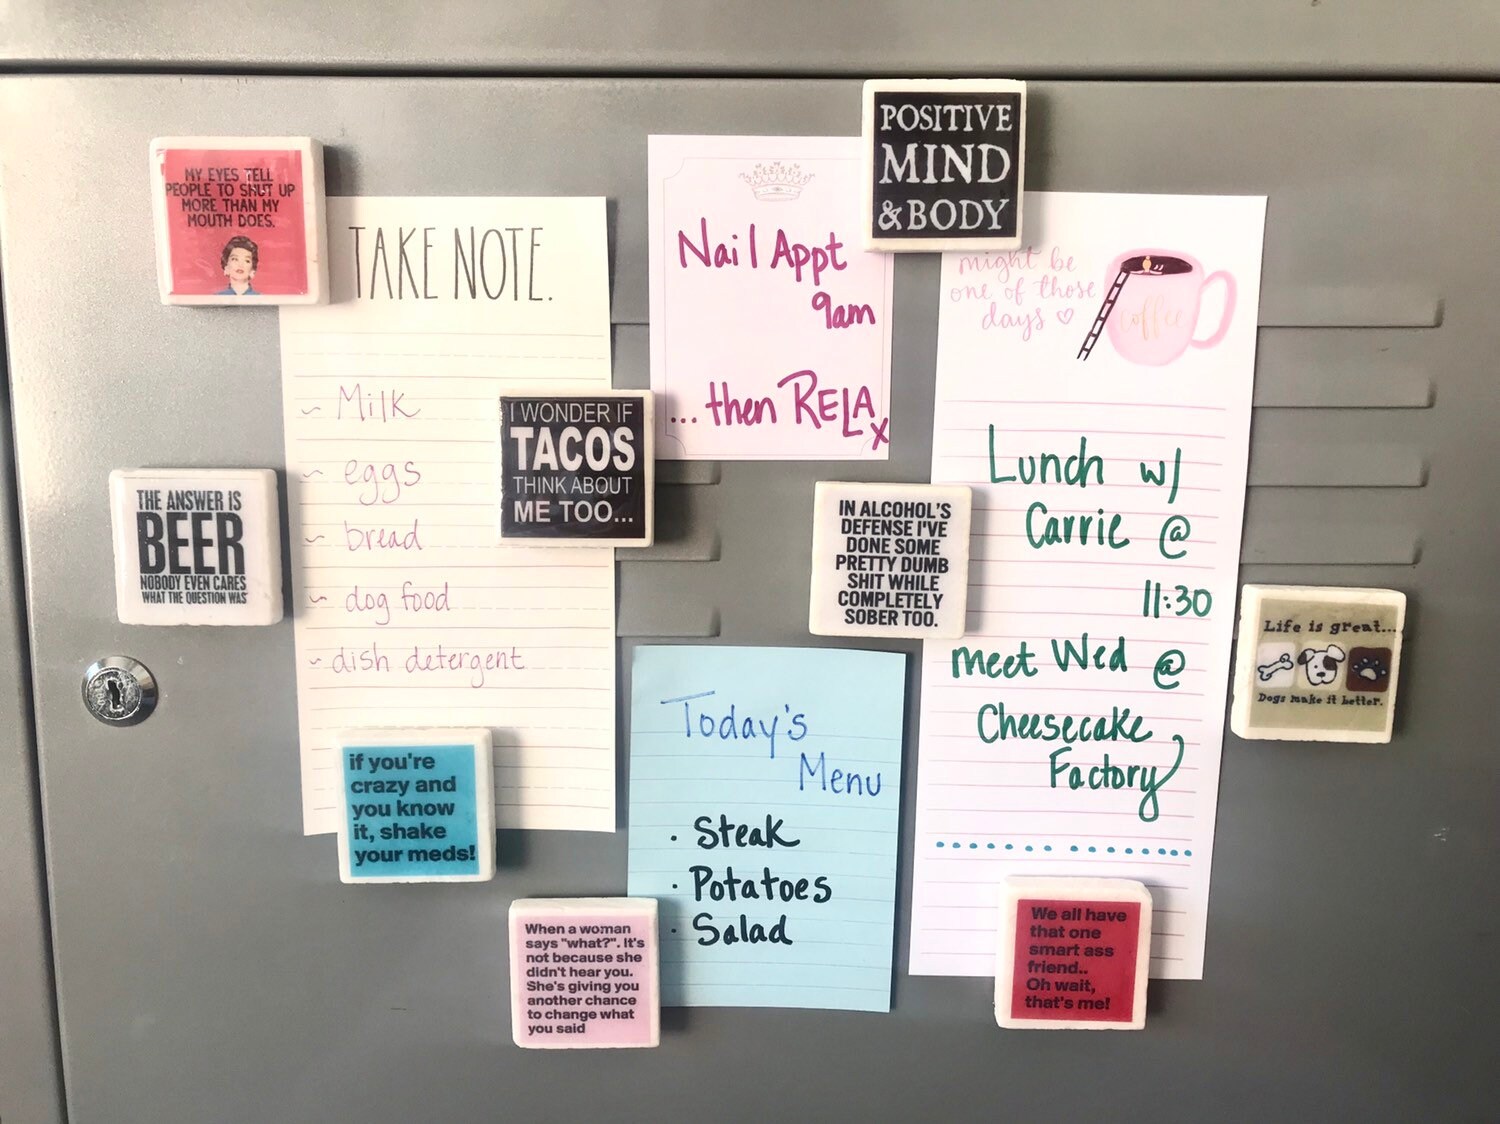 MY EYES TELL
PEOPLE TO SHUT UP
MORE THAN MY
MOUTH DOES.
TAKE NOTE.
~ Milk
~ eggs
~ bread
~ dog food
~ dish detergent
I WONDER IF
TACOS
THINK ABOUT
ME TOO...
THE ANSWER IS
BEER
NOBODY EVEN CARES
WHAT THE QUESTION WAS
if you're
crazy and
you know
it, shake
your meds!
Nail Appt
9am
...then RELAX
POSITIVE
MIND
& BODY
might be
one of those
days ♡
coffee
Lunch w/
Carrie @
11:30
meet Wed @
Cheesecake
Factory
IN ALCOHOL'S
DEFENSE I'VE
DONE SOME
PRETTY DUMB
SHIT WHILE
COMPLETELY
SOBER TOO.
Life is great...
Dogs make it better.
Today's
Menu
· Steak
· Potatoes
· Salad
When a woman
says "what?". It's
not because she
didn't hear you.
She's giving you
another chance
to change what
you said
We all have
that one
smart ass
friend..
Oh wait,
that's me!